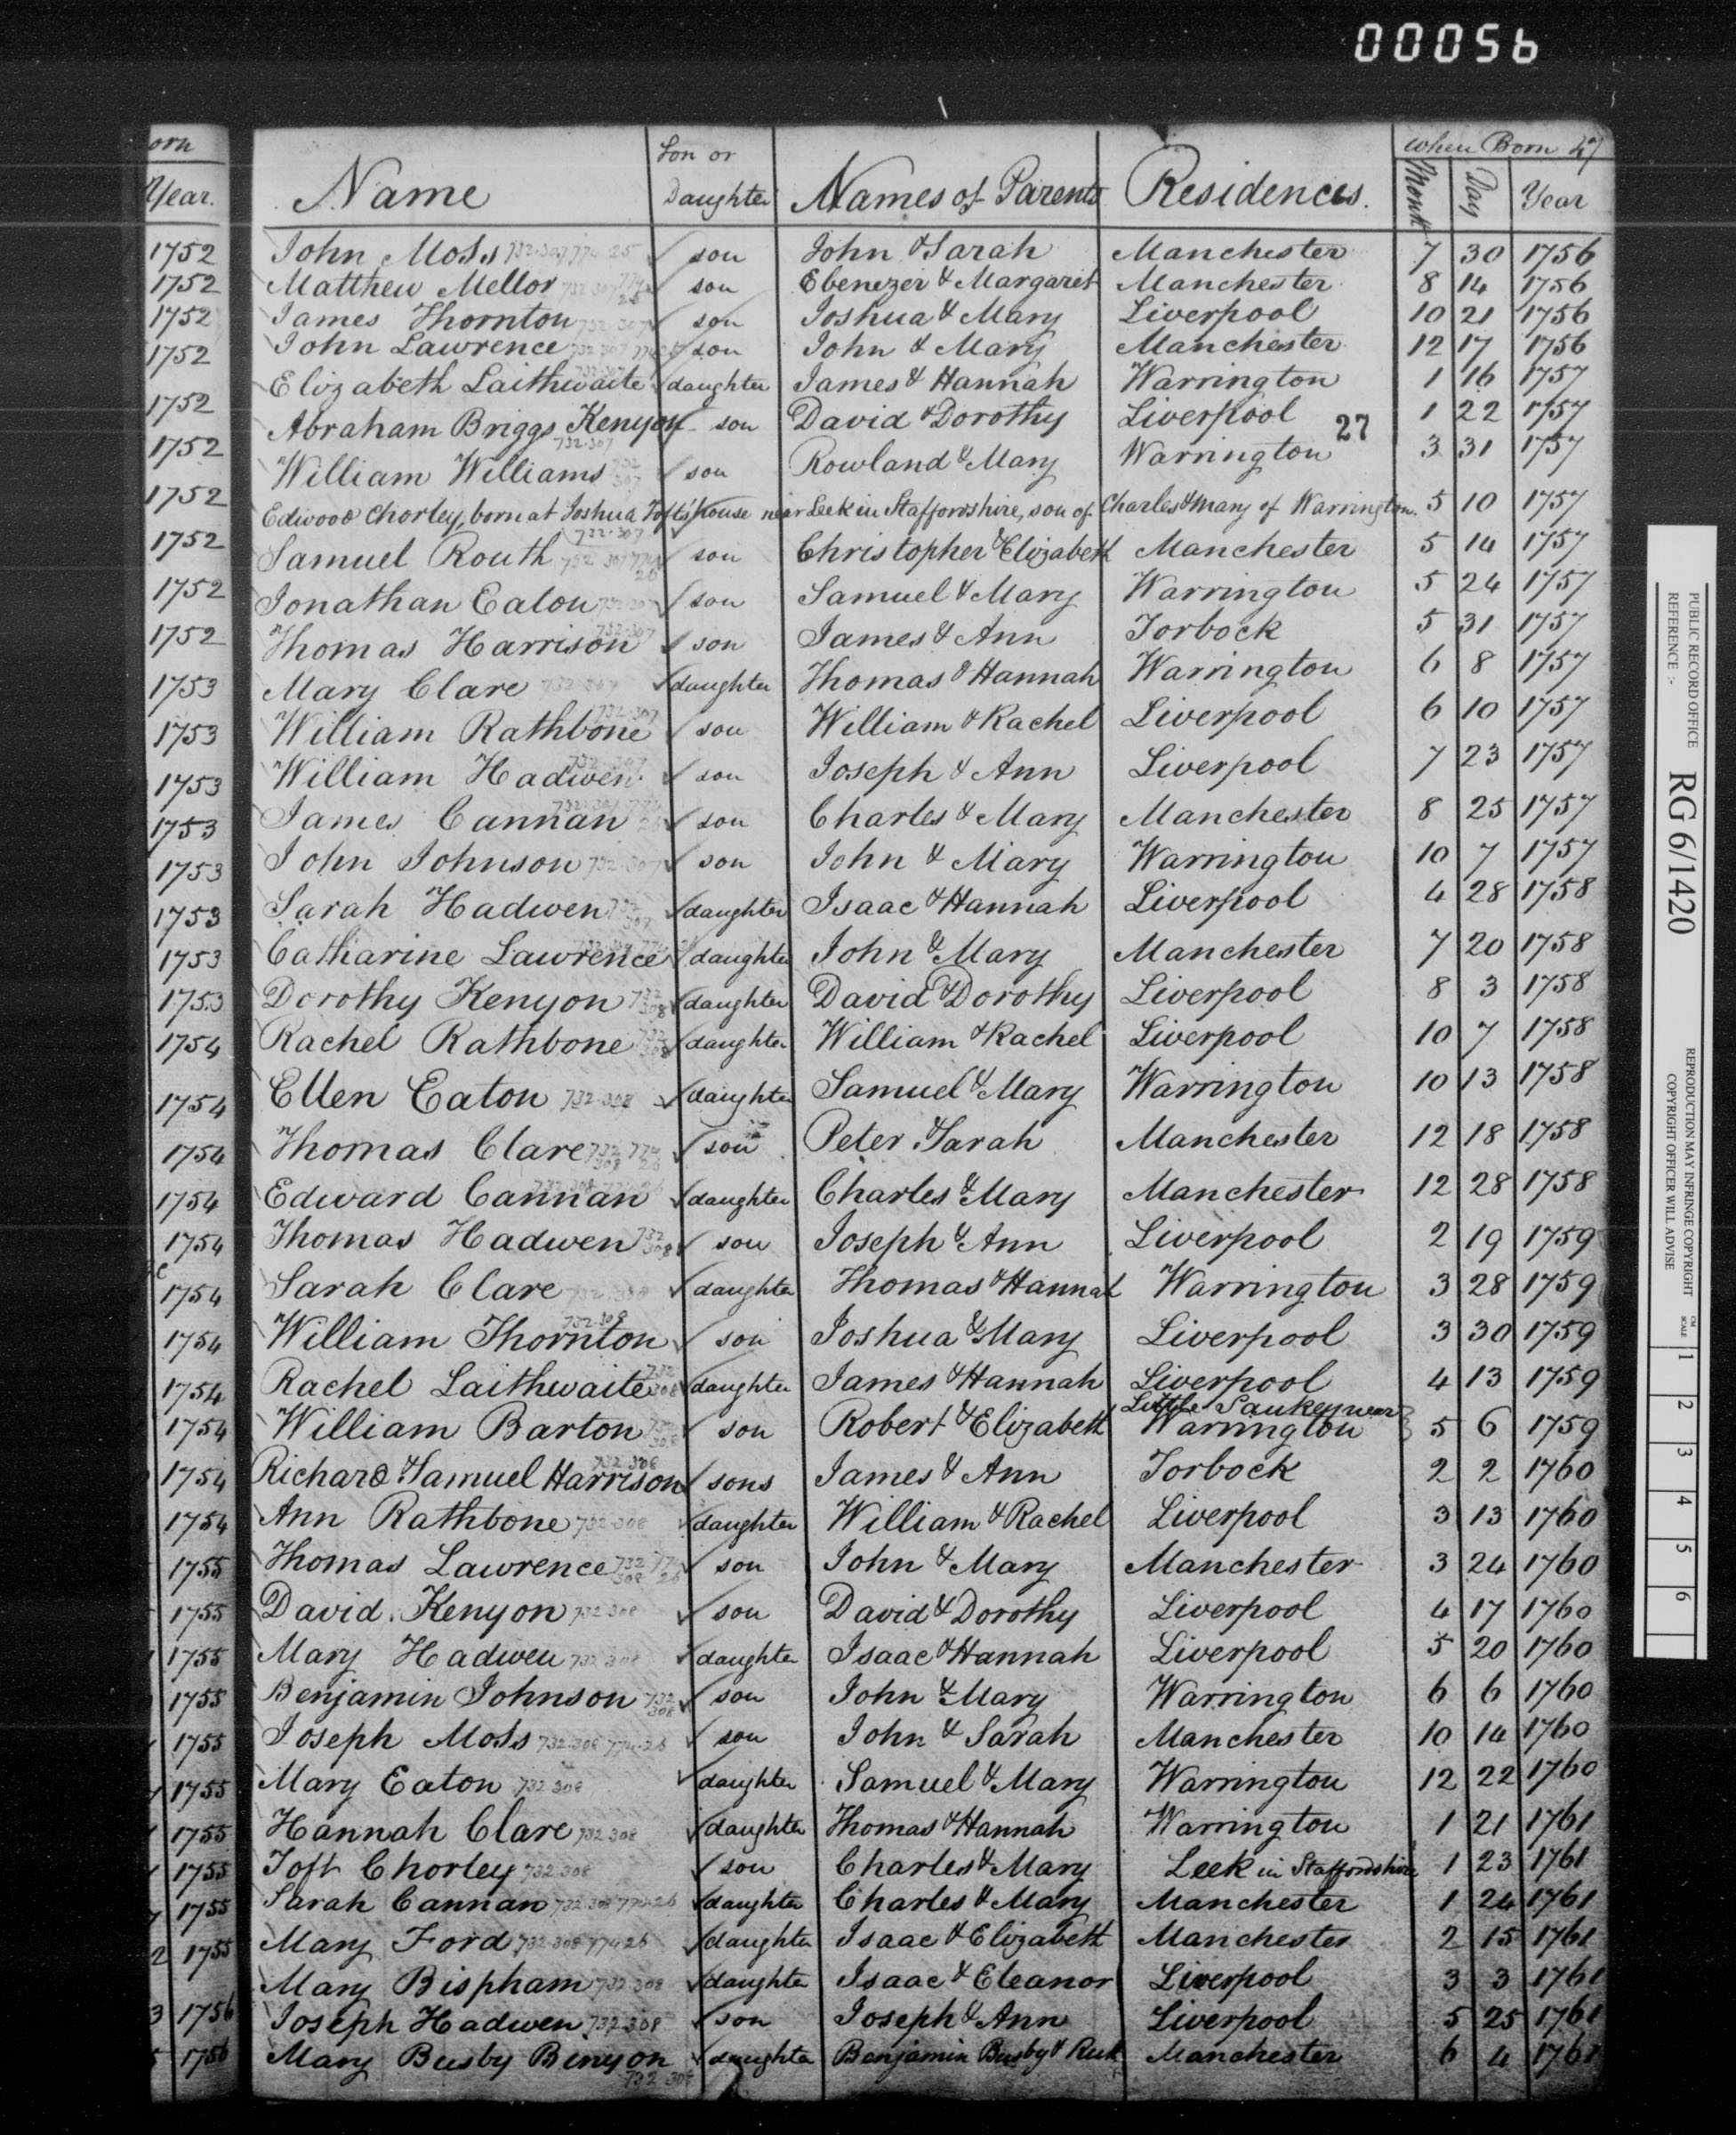 00056
orn
Year.
1752
1752
1752
1752
1752
1752
1752
1752
1752
1752
1753
1753
1753
1753
1753
1753
1753
1753
1754
1754
1754
1754
1754
1754
1754
1754
1754
1754
1754
1755
1755
1755
1755
1755
1755
1755
1755
1755
1755
1756
1756
Son or when Born 47
Name Daughter Names of Parents Residences. Month Day Year
John Moss son John & Sarah Manchester 7 30 1756
Matthew Mellor son Ebenezer & Margaret Manchester 8 14 1756
James Thornton son Joshua & Mary Liverpool 10 21 1756
John Lawrence son John & Mary Manchester 12 17 1756
Elizabeth Laithwaite daughter James & Hannah Warrington 1 16 1757
Abraham Briggs Kenyon son David & Dorothy Liverpool 1 22 1757
27
William Williams son Rowland & Mary Warrington 3 31 1757
Edwood Chorley, born at Joshua Toft's house near Leek in Staffordshire, son of Charles & Mary of Warrington. 5 10 1757
Samuel Routh son Christopher & Elizabeth Manchester 5 14 1757
Jonathan Eaton son Samuel & Mary Warrington 5 24 1757
Thomas Harrison son James & Ann Torbock 5 31 1757
Mary Clare daughter Thomas & Hannah Warrington 6 8 1757
William Rathbone son William & Rachel Liverpool 6 10 1757
William Hadwen son Joseph & Ann Liverpool 7 23 1757
James Cannan son Charles & Mary Manchester 8 25 1757
John Johnson son John & Mary Warrington 10 7 1757
Sarah Hadwen daughter Isaac & Hannah Liverpool 4 28 1758
Catharine Lawrence daughter John & Mary Manchester 7 20 1758
Dorothy Kenyon daughter David & Dorothy Liverpool 8 3 1758
Rachel Rathbone daughter William & Rachel Liverpool 10 7 1758
Ellen Eaton 732.308 daughter Samuel & Mary Warrington 10 13 1758
Thomas Clare son Peter & Sarah Manchester 12 18 1758
Edward Cannan daughter Charles & Mary Manchester 12 28 1758
Thomas Hadwen son Joseph & Ann Liverpool 2 19 1759
Sarah Clare daughter Thomas & Hannah Warrington 3 28 1759
William Thornton son Joshua & Mary Liverpool 3 30 1759
Rachel Laithwaite daughter James & Hannah Liverpool 4 13 1759
Little Sankey near
William Barton son Robert & Elizabeth Warrington 5 6 1759
Richard & Samuel Harrison sons James & Ann Torbock 2 2 1760
Ann Rathbone 732.308 daughter William & Rachel Liverpool 3 13 1760
Thomas Lawrence son John & Mary Manchester 3 24 1760
David Kenyon 732 308 son David & Dorothy Liverpool 4 17 1760
Mary Hadwen 732 308 daughter Isaac & Hannah Liverpool 5 20 1760
Benjamin Johnson son John & Mary Warrington 6 6 1760
Joseph Moss 732.308 774.26 son John & Sarah Manchester 10 14 1760
Mary Eaton 732 308 daughter Samuel & Mary Warrington 12 22 1760
Hannah Clare 732 308 daughter Thomas & Hannah Warrington 1 21 1761
Toft Chorley 732 308 son Charles & Mary Leek in Staffordshire 1 23 1761
Sarah Cannan 732 308 774.26 daughter Charles & Mary Manchester 1 24 1761
Mary Ford 732.308 774 26 daughter Isaac & Elizabeth Manchester 2 15 1761
Mary Bispham 732 308 daughter Isaac & Eleanor Liverpool 3 3 1761
Joseph Hadwen 732 308 son Joseph & Ann Liverpool 5 25 1761
Mary Busby Binyon daughter Benjamin Busby & Manchester 6 4 1761
732 308
PUBLIC RECORD OFFICE
REFERENCE :-
RG 6/1420
REPRODUCTION MAY INFRINGE COPYRIGHT
COPYRIGHT OFFICER WILL ADVISE
CM
SCALE
1
2
3
4
5
6